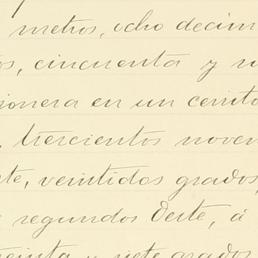 metros, ocho decim
os, cincuenta y nu
ionera en un cerrito
, trescientos noven
te, veintidos grados,
segundos Oeste, á
treinta y siete grados